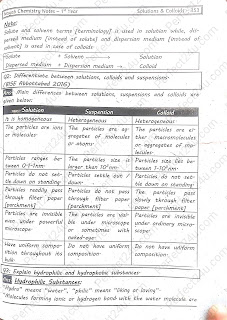 Chemistry Notes – 1st Year
Solutions & Colloids – 353
Note:
Solute and solvent terms (terminology) is used in solution while, dis-
persed medium [instead of solute] and dispersion medium [instead of
solvent] is used in case of colloids
Solute + Solvent → Solution
Dispersed medium + Dispersion medium → Colloid
Q2: Differentiate between solutions, colloids and suspensions.
(BISE Abbottabad 2016)
Main differences between solutions, suspensions and colloids are
given below:
Solution Suspension Colloid
It is homogeneous Heterogeneous Heterogeneous
The particles are ions
or molecules
The particles are ag-
gregates of molecules
or atoms
The particles are ei-
ther macromolecules
or aggregates of mo-
lecules
Particles ranges be-
tween 0.1-1nm
The particles size
larger than 10³nm
Particles size lies be-
tween
Particles do not set-
tle down on standing
Particles settle out
down
Particles do not set-
tle down on standing
Particles readily pass
through filter paper
[parchment]
Particles do not pass
through filter paper
[parchment]
The particles pass
slowly through filter
paper [parchment]
Particles are invisible
even under powerful
microscope
The particles are visi-
ble under microscope
or sometimes with
naked-eye
Particles are invisible
under ordinary micro-
scope
Have uniform compo-
sition throughout its
bulk
Do not have uniform
composition
Do not have uniform
composition
Q3: Explain hydrophilic and hydrophobic substances:
Hydrophilic Substances:
"Hydro" means "water", "philic" means "liking or loving"
"Molecules forming ionic or hydrogen bond with the water molecule are